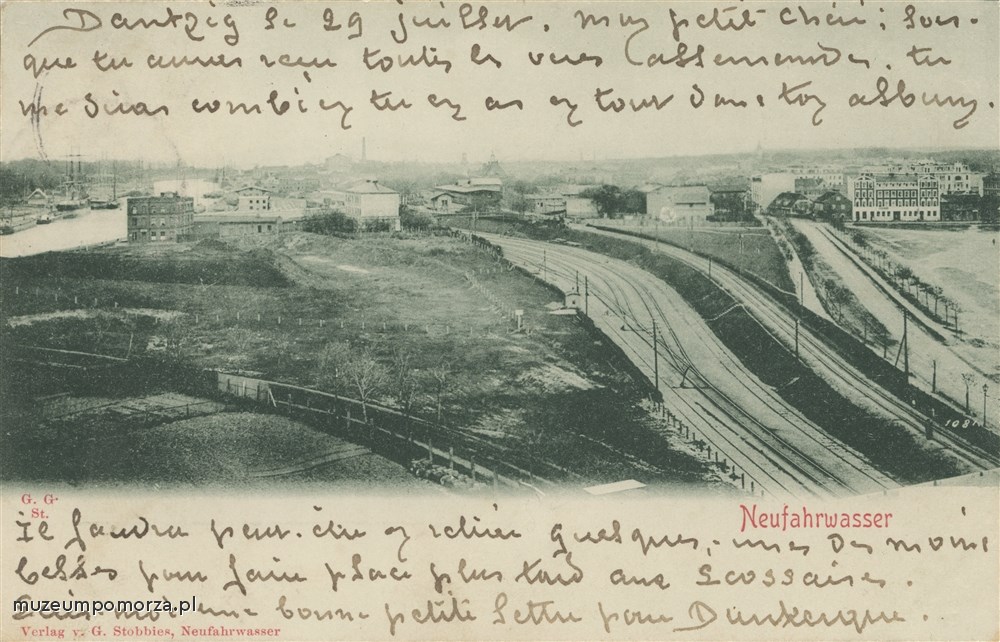 Dantzig le 29 juillet. Mon petit chéri; lors-
que tu auras reçu toutes les vues allemandes, tu
me diras combien tu en as en tout dans ton album.
1081
G. G.
St.
Neufahrwasser
Il faudra peut-être en retirer quelques-unes des moins
belles pour faire place plus tard aux Écossaises.
Écris-moi une bonne petite lettre pour Dunkerque.
muzeumpomorza.pl
Verlag v. G. Stobbies, Neufahrwasser